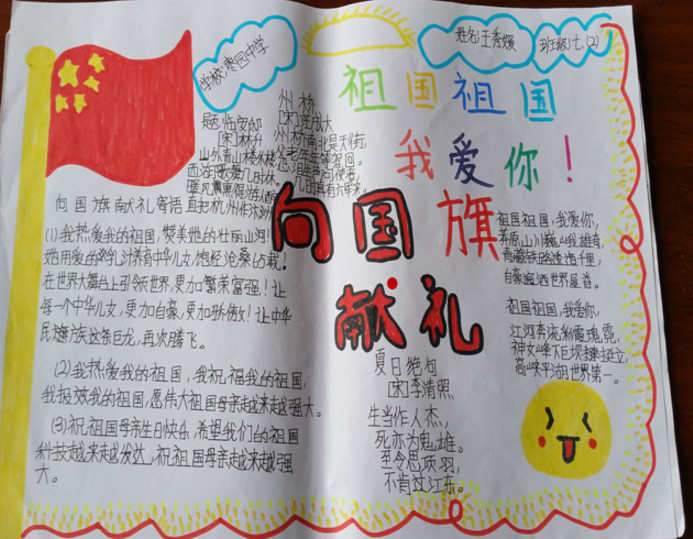 学校:枣园中学
姓名:王秀媛
班级:七(2)
祖国祖国
我爱你!
题临安邸
[宋]林升
山外青山楼外楼,
西湖歌舞几时休。
暖风熏得游人醉,
直把杭州作汴州。
州桥
[宋]范成大
州桥南北是天街,
父老年年等驾回。
向国旗献礼寄语
(1)我热爱我的祖国,赞美她的壮丽山河!
在世界大舞台上引领世界,更加繁荣富强!让
每一个中华儿女,更加自豪,更加骄傲!让中华
民族这条巨龙,再次腾飞。
(2)我热爱我的祖国,我祝福我的祖国,
我报效我的祖国,愿伟大祖国母亲越来越强大。
(3)祝祖国母亲生日快乐,希望我们的祖国
科技越来越发达,祝祖国母亲越来越强
大。
向国旗
献礼
夏日绝句
[宋]李清照
生当作人杰,
死亦为鬼雄。
至今思项羽,
不肯过江东。
祖国祖国,我爱你,
青藏铁路连通千里,
祖国祖国,我爱你,
高峡平湖世界第一。